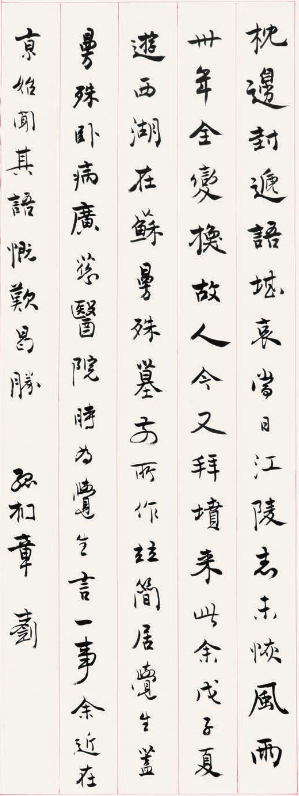 枕邊封遞語堪哀當日江陵志未恢風雨
卅年全變換故人今又拜墳來此余戊子夏
遊西湖在蘇曼殊墓前所作兹簡居覺生蓋
曼殊卧病廣慈醫院時為覺生言一事余近在
京始聞其語慨歎曷勝 孤桐章